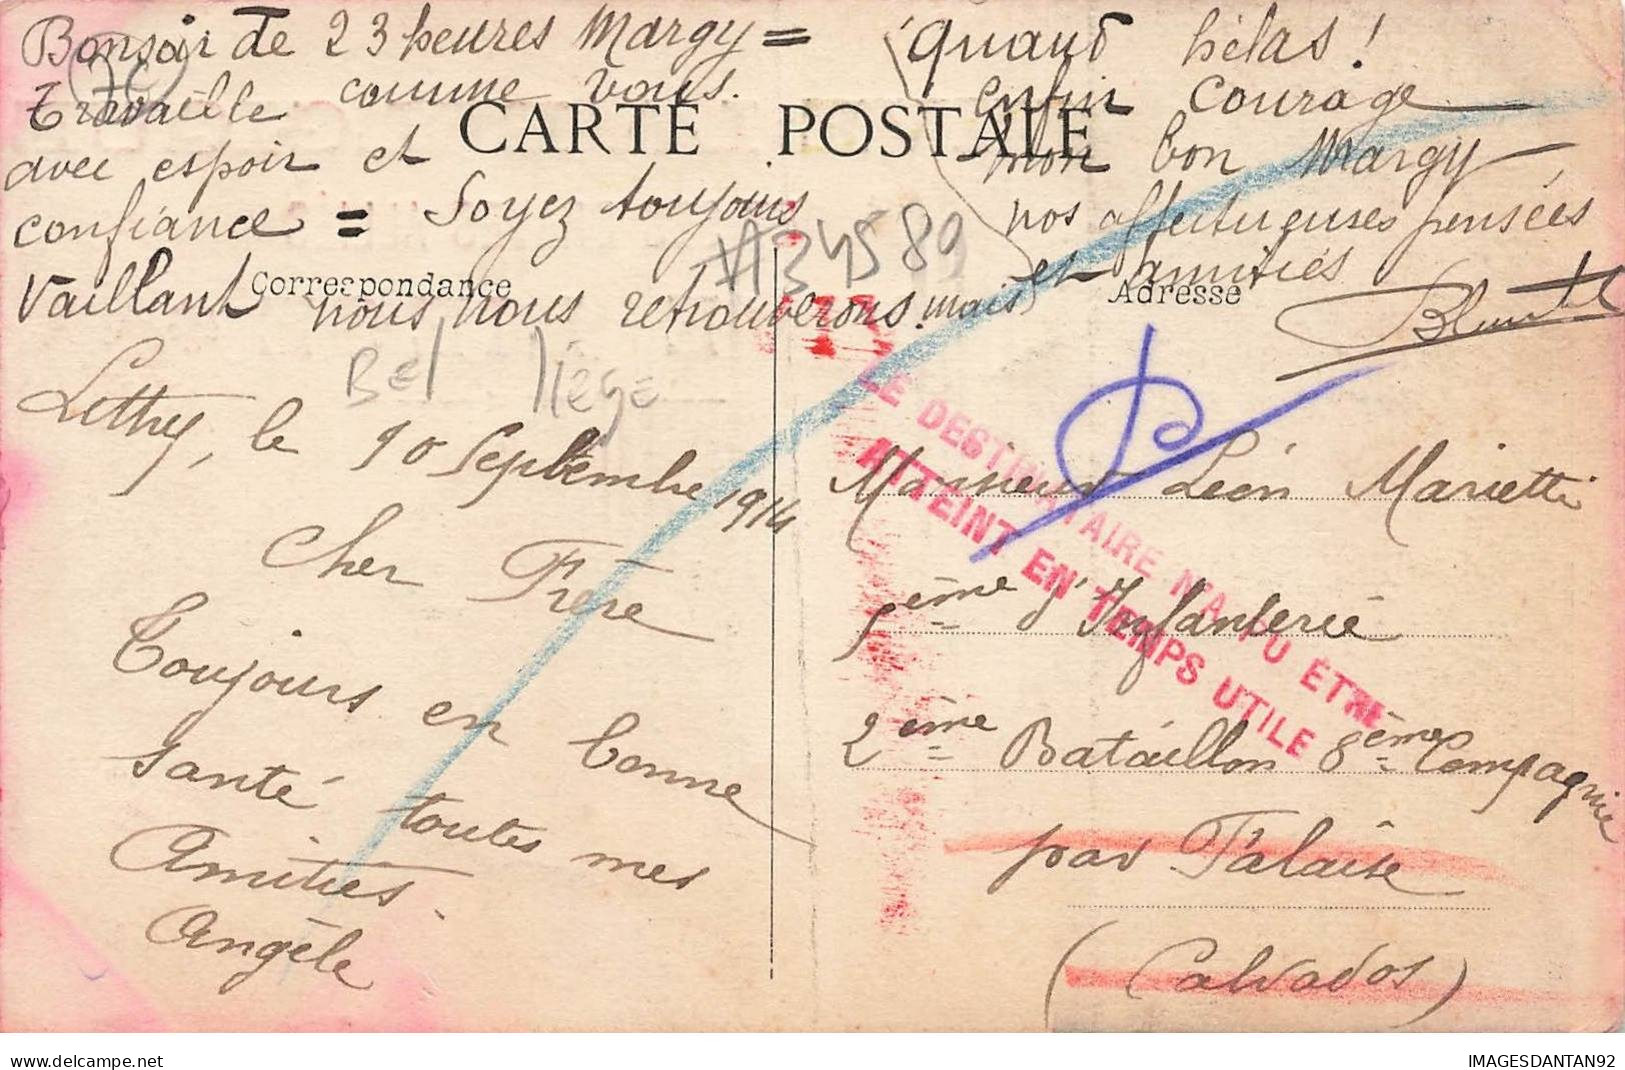 Bonsoir de 23 heures Margy =
Travaille comme vous.
avec espoir et
confiance = Soyez toujours
Vaillant nous nous retrouverons. mais
quand hélas !
enfin courage
mon bon Margy
nos affectueuses pensées
et amitiés
CARTE POSTALE
Correspondance
Adresse
A34589
Bel liége
Lethy, le 10 Septembre 1914
Cher Frère
Toujours en bonne
santé toutes mes
Amitiés.
Angèle
LE DESTINATAIRE N'A PU ÊTRE
ATTEINT EN TEMPS UTILE
Monsieur Léon Marietti
5ème d'Infanterie
2ème Bataillon 8ème Compagnie
par Falaise
(Calvados)
delcampe.net
IMAGESDANTAN92